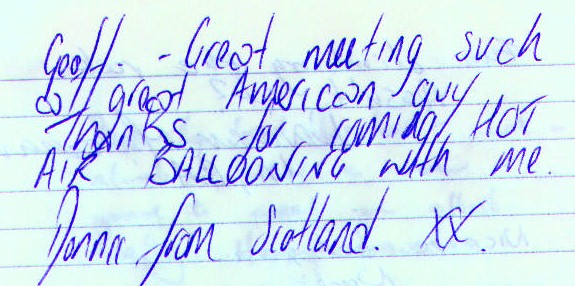 Geoff. - Great meeting such
a great American guy
Thanks for coming HOT
AIR BALLOONING with me.
Donna from Scotland. XX.